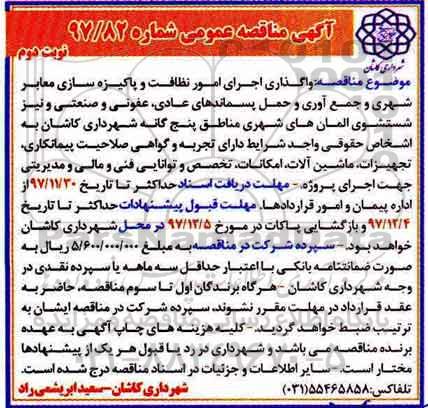 آگهی مناقصه عمومی شماره ۹۷/۸۲
نوبت دوم
شهرداری کاشان
موضوع مناقصه: واگذاری اجرای امور نظافت و پاکیزه سازی معابر
شهری و جمع آوری و حمل پسماندهای عادی، عفونی و صنعتی و نیز
شستشوی المان های شهری مناطق پنج گانه شهرداری کاشان به
اشخاص حقوقی واجد شرایط دارای تجربه و گواهی صلاحیت پیمانکاری،
تجهیزات، ماشین آلات، امکانات، تخصص و توانایی فنی و مالی و مدیریتی
جهت اجرای پروژه. - مهلت دریافت اسناد حداکثر تا تاریخ ۹۷/۱۱/۳۰ از
اداره پیمان و امور قراردادها. مهلت قبول پیشنهادات حداکثر تا تاریخ
۹۷/۱۲/۴ و بازگشایی پاکات در مورخ ۹۷/۱۲/۵ در محل شهرداری کاشان
خواهد بود. - سپرده شرکت در مناقصه به مبلغ ۵/۶۰۰/۰۰۰/۰۰۰ ریال به
صورت ضمانتنامه بانکی با اعتبار حداقل سه ماهه یا سپرده نقدی در
وجه شهرداری کاشان - هرگاه برندگان اول تا سوم مناقصه، حاضر به
عقد قرارداد در مهلت مقرر نشوند، سپرده شرکت در مناقصه ایشان به
ترتیب ضبط خواهد گردید. - کلیه هزینه های چاپ آگهی به عهده
برنده مناقصه می باشد. - شهرداری در رد یا قبول هر یک از پیشنهادها
مختار است. - سایر اطلاعات و جزئیات در اسناد مناقصه درج شده است.
تلفاکس: ۵۵۴۶۵۸۵۸(۰۳۱) شهرداری کاشان - سعید ابریشمی راد